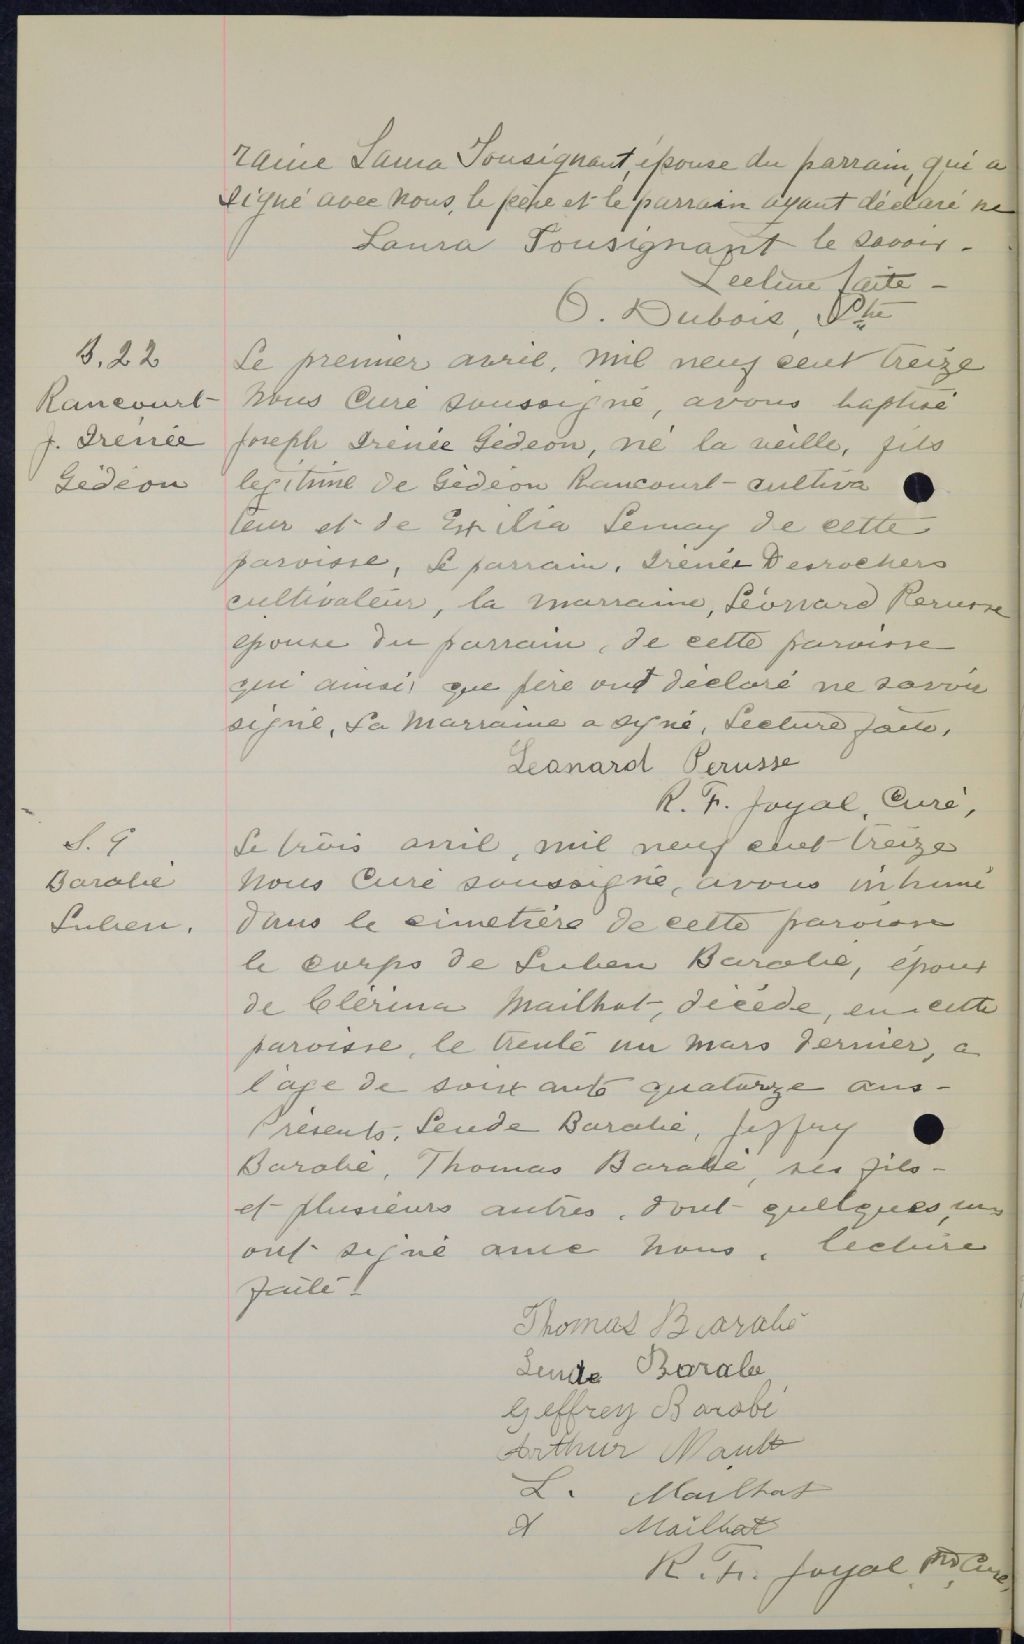 raine Laura Tousignant, épouse du parrain, qui a
signé avec nous, le père et le parrain ayant déclaré ne
Laura Tousignant le savoir -
Lecture faite -
O. Dubois, Ptre
B. 22
Rancourt
J. Irénée
Gédéon
Le premier avril, mil neuf cent treize
Nous Curé soussigné, avons baptisé
Joseph Irénée Gédeon, né la veille, fils
legitime de Gédéon Rancourt - cultiva
teur et de Exilia Lemay de cette
paroisse, Le parrain, Irénée Desrochers
cultivateur, la marraine, Léonard Perusse
épouse du parrain, de cette paroisse
qui ainsi que père ont déclaré ne savoir
signé, La Marraine a signé, Lecture faite,
Leanard Perusse
R. F. Joyal, Curé,
S. 9
Barabé
Luben.
Le trois avril, mil neuf cent treize
Nous Curé soussigné, avons inhumé
dans le cimetière de cette paroisse
le corps de Luben Barabé, époux
de Clérina Mailhot, décédé, en cette
paroisse, le trente un mars dernier, a
l'age de soixante quatorze ans -
Présents, Leude Barabé, Jeffry
Barabé, Thomas Barabé, ses fils -
et plusieurs autres, dont quelques uns
ont signé avec nous, lecture
faite!
Thomas Barabé
Leude Barabe
Geffrey Barabé
Arthur Nault
L. Mailhot
A Mailhot
R. F. Joyal Ptre Curé,